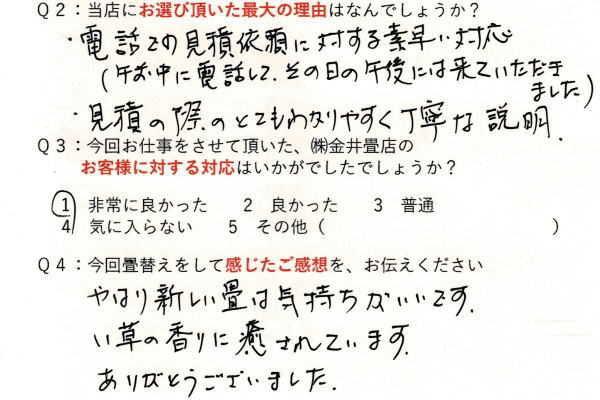 Q2：当店にお選び頂いた最大の理由はなんでしょうか？
・電話での見積依頼に対する素早い対応
(午前中に電話して、その日の午後には来ていただき
ました)
・見積の際のとてもわかりやすく丁寧な説明.
Q3：今回お仕事をさせて頂いた、㈱金井畳店の
お客様に対する対応はいかがでしたでしょうか？
1 非常に良かった 2 良かった 3 普通
4 気に入らない 5 その他（ ）
Q4：今回畳替えをして感じたご感想を、お伝えください
やはり新しい畳は気持ちがいいです.
い草の香りに癒されています.
ありがとうございました.